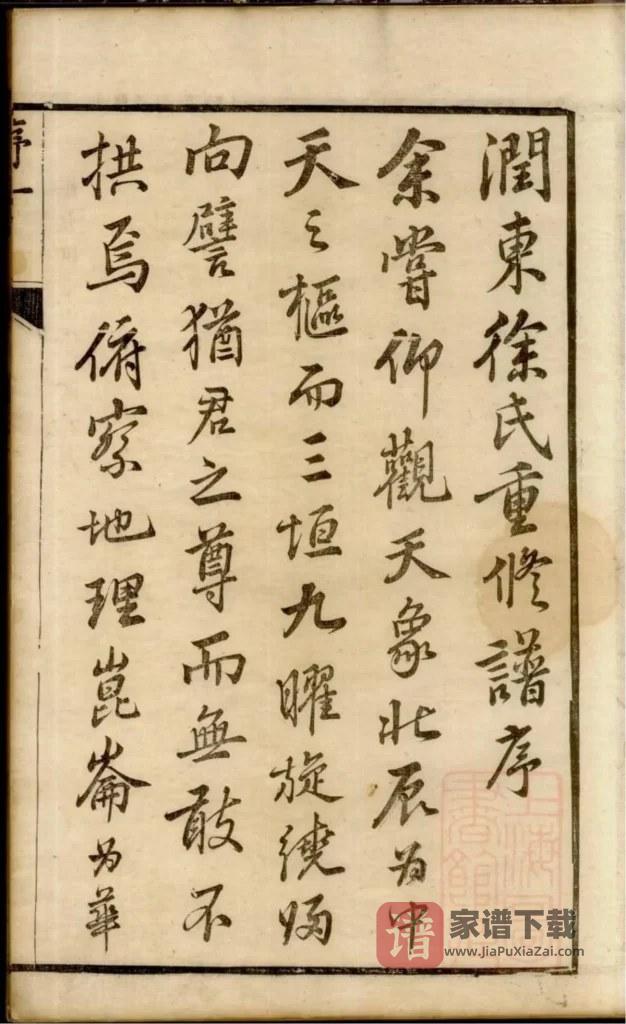 潤東徐氏重修譜序
余嘗仰觀天象北辰為中
天之樞而三垣九曜旋繞
向譬猶君之尊而無敢不
拱焉俯察地理崑崙為華
序一
上海
書館
谱
家谱下载
www.JiaPuXiaZai.com